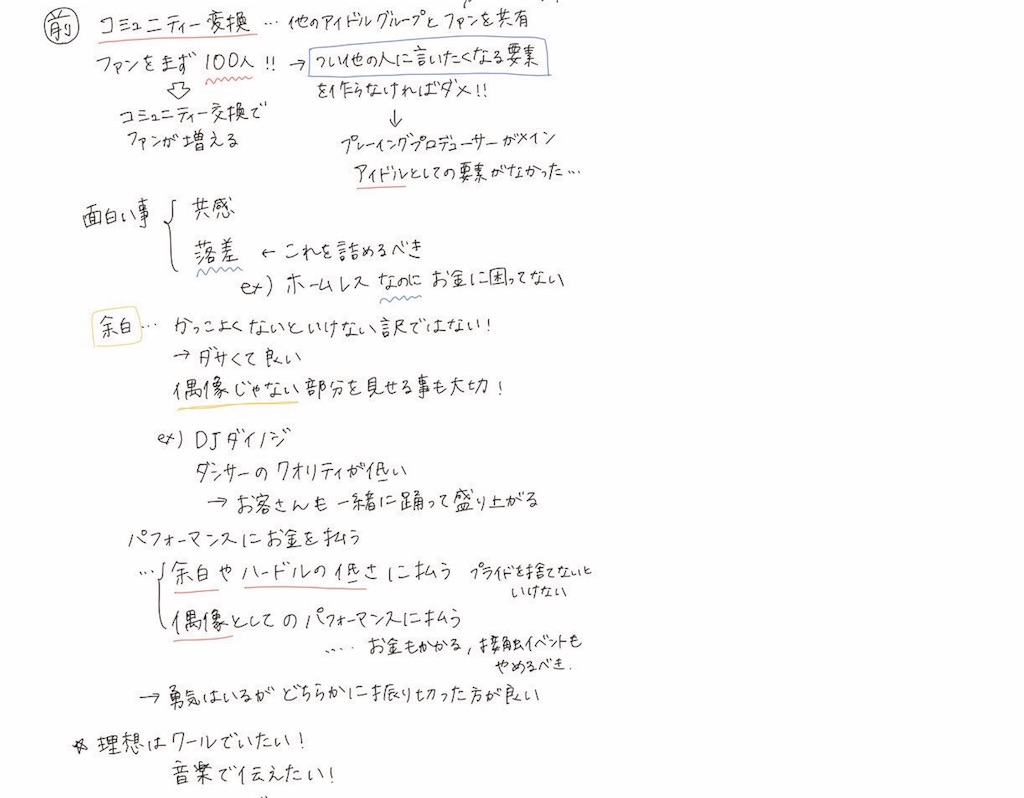 前 コミュニティー変換 … 他のアイドルグループとファンを共有
ファンをまず 100人 !! → つい他の人に言いたくなる要素
を作らなければダメ!!
コミュニティー交換で
ファンが増える
↓
プレーイングプロデューサーがメイン
アイドルとしての要素がなかった…
面白い事 { 共感
落差 ← これを詰めるべき
ex) ホームレス なのに お金に困ってない
余白 … かっこよくないといけない訳ではない!
→ ダサくて良い
偶像じゃない部分を見せる事も大切!
ex) DJダイノジ
ダンサーのクオリティが低い
→ お客さんも一緒に踊って盛り上がる
パフォーマンスにお金を払う
… { 余白やハードルの低さに払う プライドを捨てないと
いけない
偶像としてのパフォーマンスに払う
…. お金もかかる, 接触イベントも
やめるべき.
→ 勇気はいるがどちらかに振り切った方が良い
☆ 理想はクールでいたい!
音楽で伝えたい!